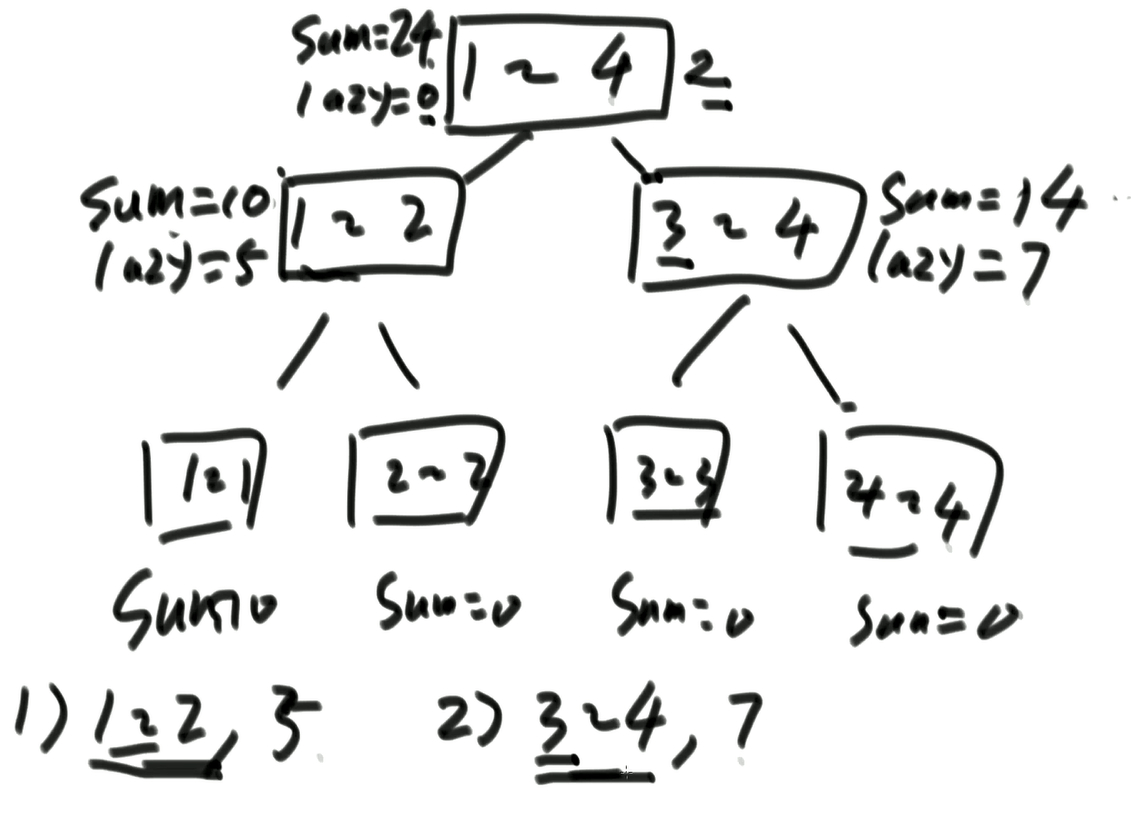 Sum=24
lazy=0
1 ~ 4
2
Sum=10
lazy=5
1 ~ 2
3 ~ 4
Sum=14
lazy=7
1~1
2~2
3~3
4~4
Sum=0
Sum=0
Sum=0
Sum=0
1) 1~2, 5
2) 3~4, 7